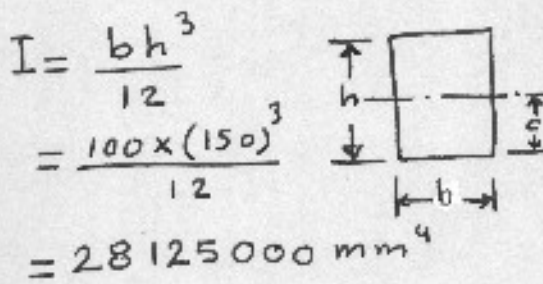 I = bh³/12
= 100 x (150)³/12
= 28125000 mm⁴
h
c
b